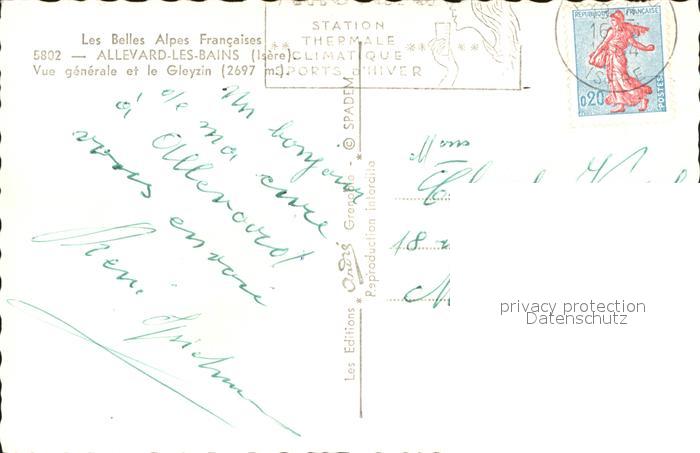 Les Belles Alpes Françaises
5802 — ALLEVARD-LES-BAINS (Isère)
Vue générale et le Gleyzin (2697 m.)
STATION
THERMALE
CLIMATIQUE
SPORTS d'HIVER
RÉPUBLIQUE FRANÇAISE
0,20
POSTES
ISERE
Un bonjour
de ma cure
à Allevard
vous envoie
Les Editions * André * Grenoble - © SPADEM
Reproduction interdite
Mons
18
privacy protection
Datenschutz